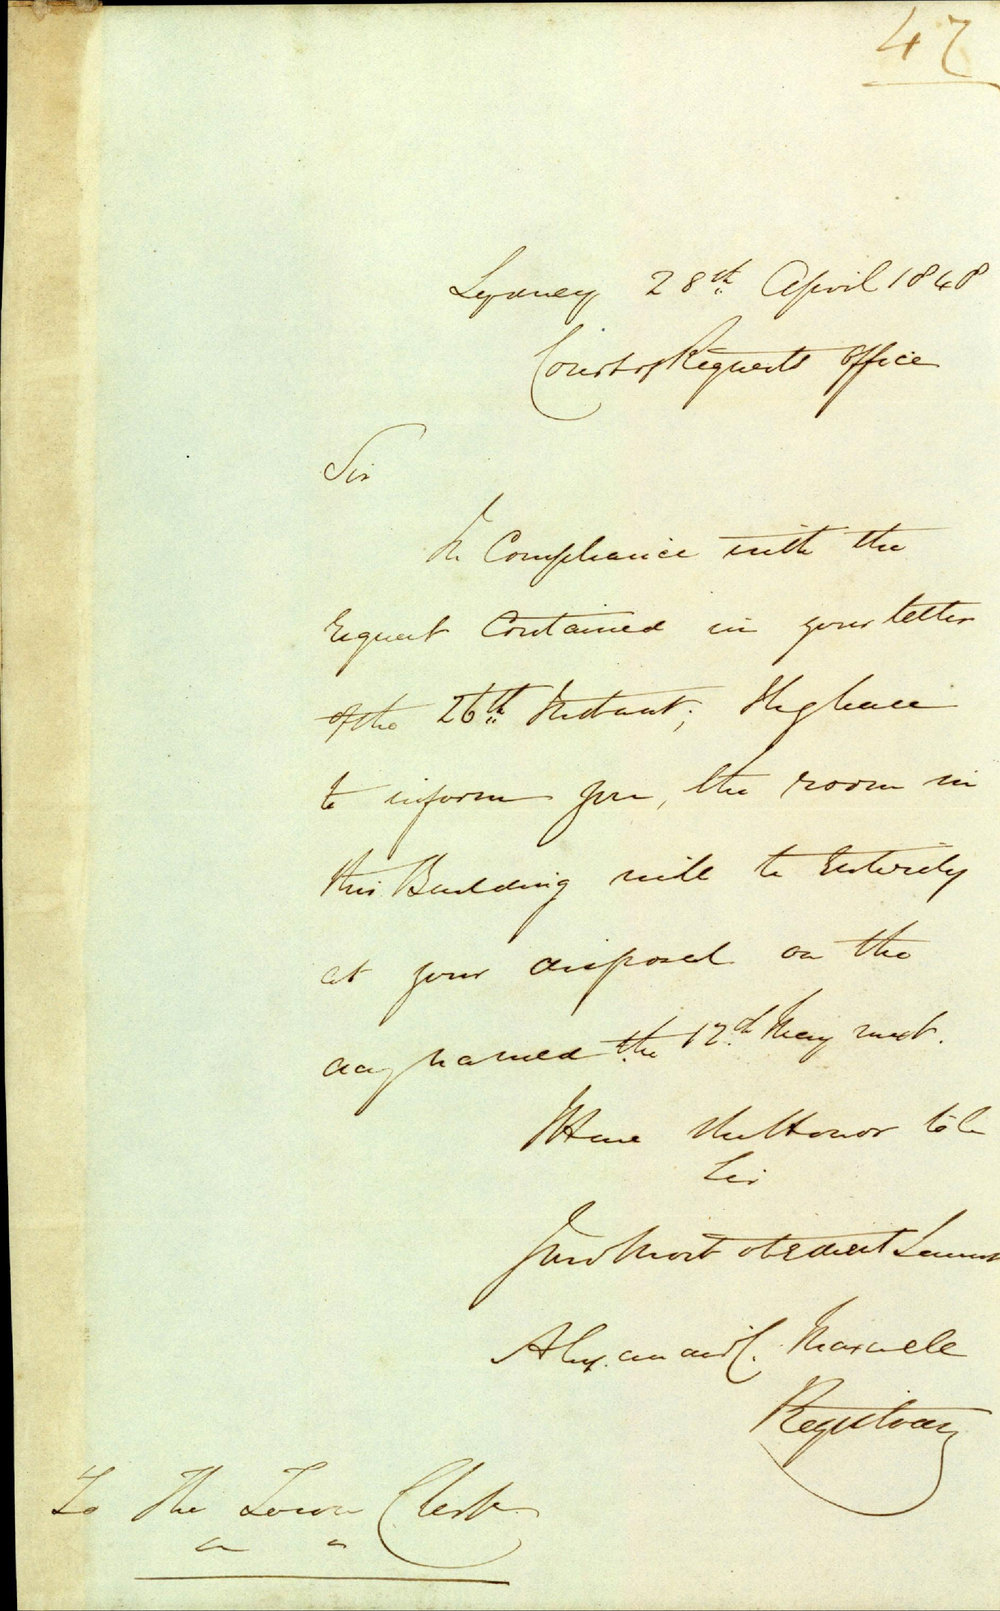 47
Sydney 28th April 1848
Court of Requests Office
Sir
In Compliance with the
request Contained in your letter
of the 26th Instant;
to inform you, the room in
this Building will be Entirely
at your disposal on the
day named the 12th May next.
I Have the Honor to be
Sir
Your Most obedient Servant
Alexander C. Maxwell
Registrar
To The Town Clerk